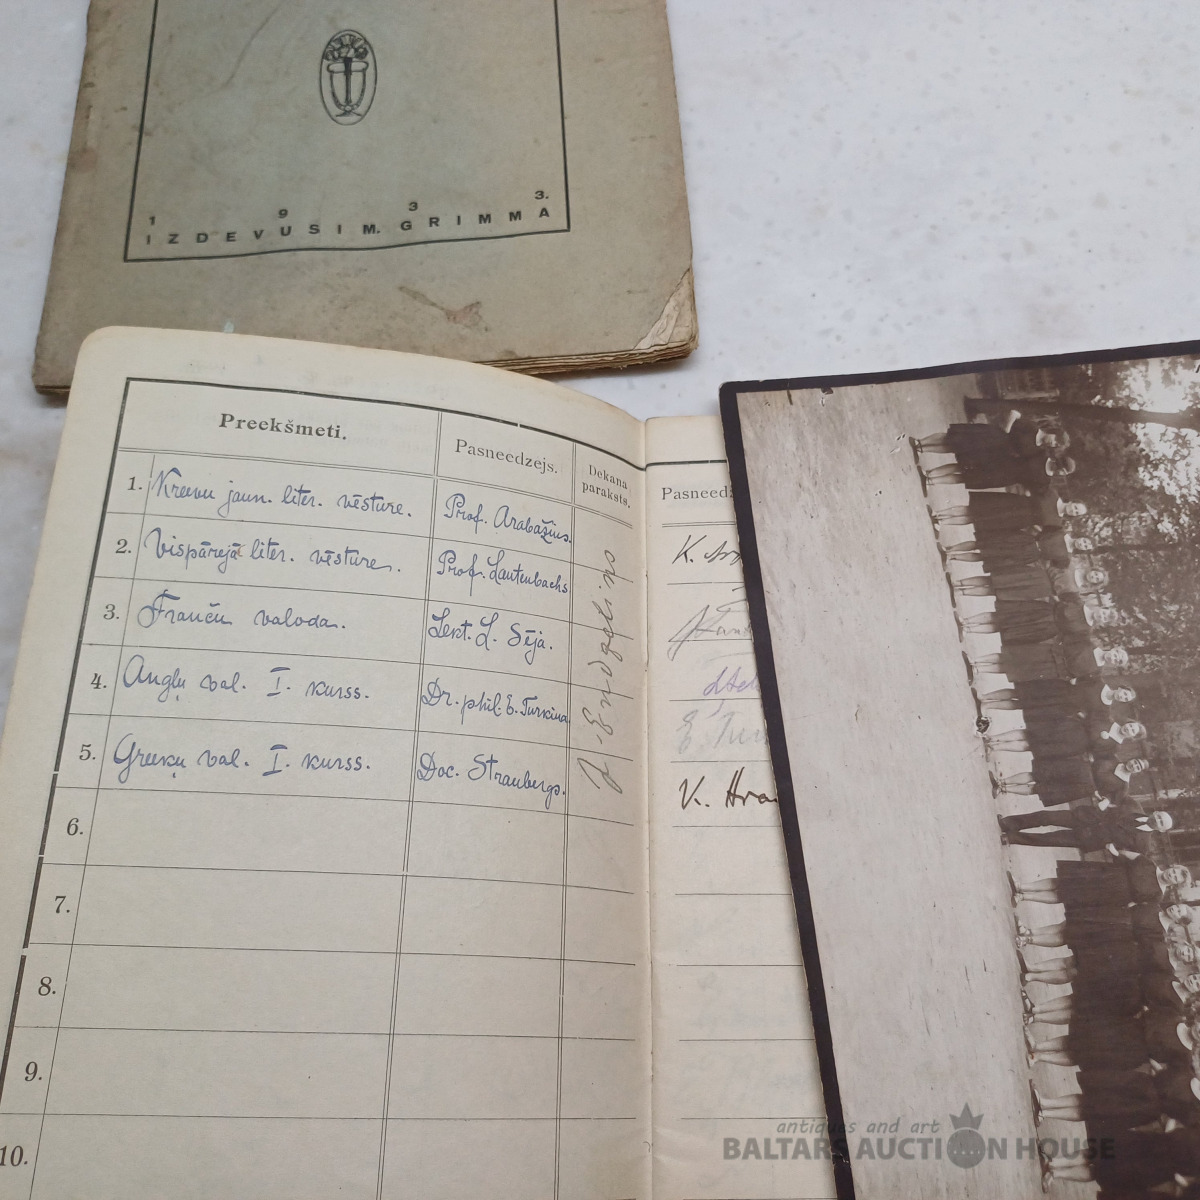 1 9 3 3.
IZDEVUSI M. GRIMMA
Preekšmeti. Pasneedzejs. Dekana paraksts.
1. Kreevu jaun. liter. vēsture. Prof. Arabažins.
2. Vispārējā liter. vēsture. Prof. Lautenbachs
3. Franču valoda. Lekt. L. Sēja.
4. Angļu val. I. kurss. Dr. phil. E. Turkina
5. Greeķu val. I. kurss. Doc. Straubergs.
6.
7.
8.
9.
10.
J. Endzelins
Pasneedz
K.
E. Tur
K. Stra
antiques and art
BALTARS AUCTION HOUSE